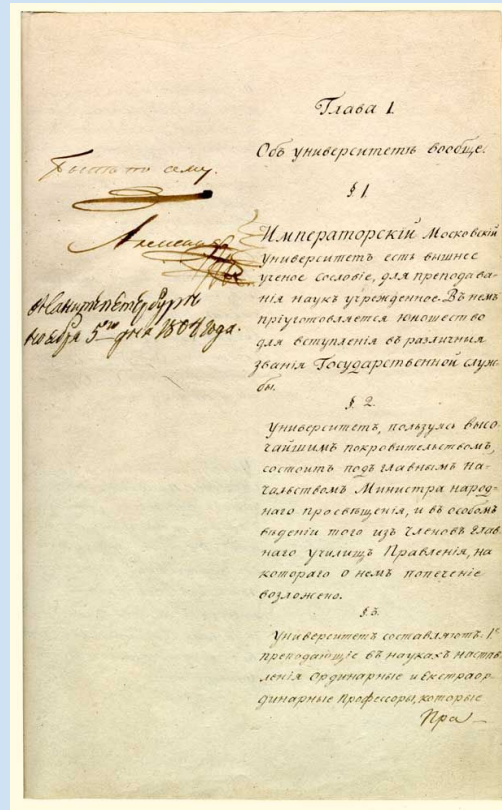 Глава I.
Объ университетѣ вообще.
§ 1.
Быть по сему.
Александръ
въ Санктпетербургѣ
ноября 5го дня 1804 года.
Императорскій Московскій
университетъ есть вышнее
ученое сословіе, для преподава-
нія наукъ учрежденное. Въ немъ
пріуготовляется юношество
для вступленія въ различныя
званія Государственной служ-
бы.
§ 2.
Университетъ, пользуясь высо-
чайшимъ покровительствомъ,
состоитъ подъ главнымъ на-
чальствомъ Министра народ-
наго просвѣщенія, и въ особомъ
вѣденіи того изъ членовъ глав-
наго училищъ Правленія, на
котораго о немъ попеченіе
возложено.
§ 3.
Университетъ составляютъ: 1е
преподающіе въ наукахъ настав-
ленія Ординарные и Екстраор-
динарные Профессоры, которые
Пра-